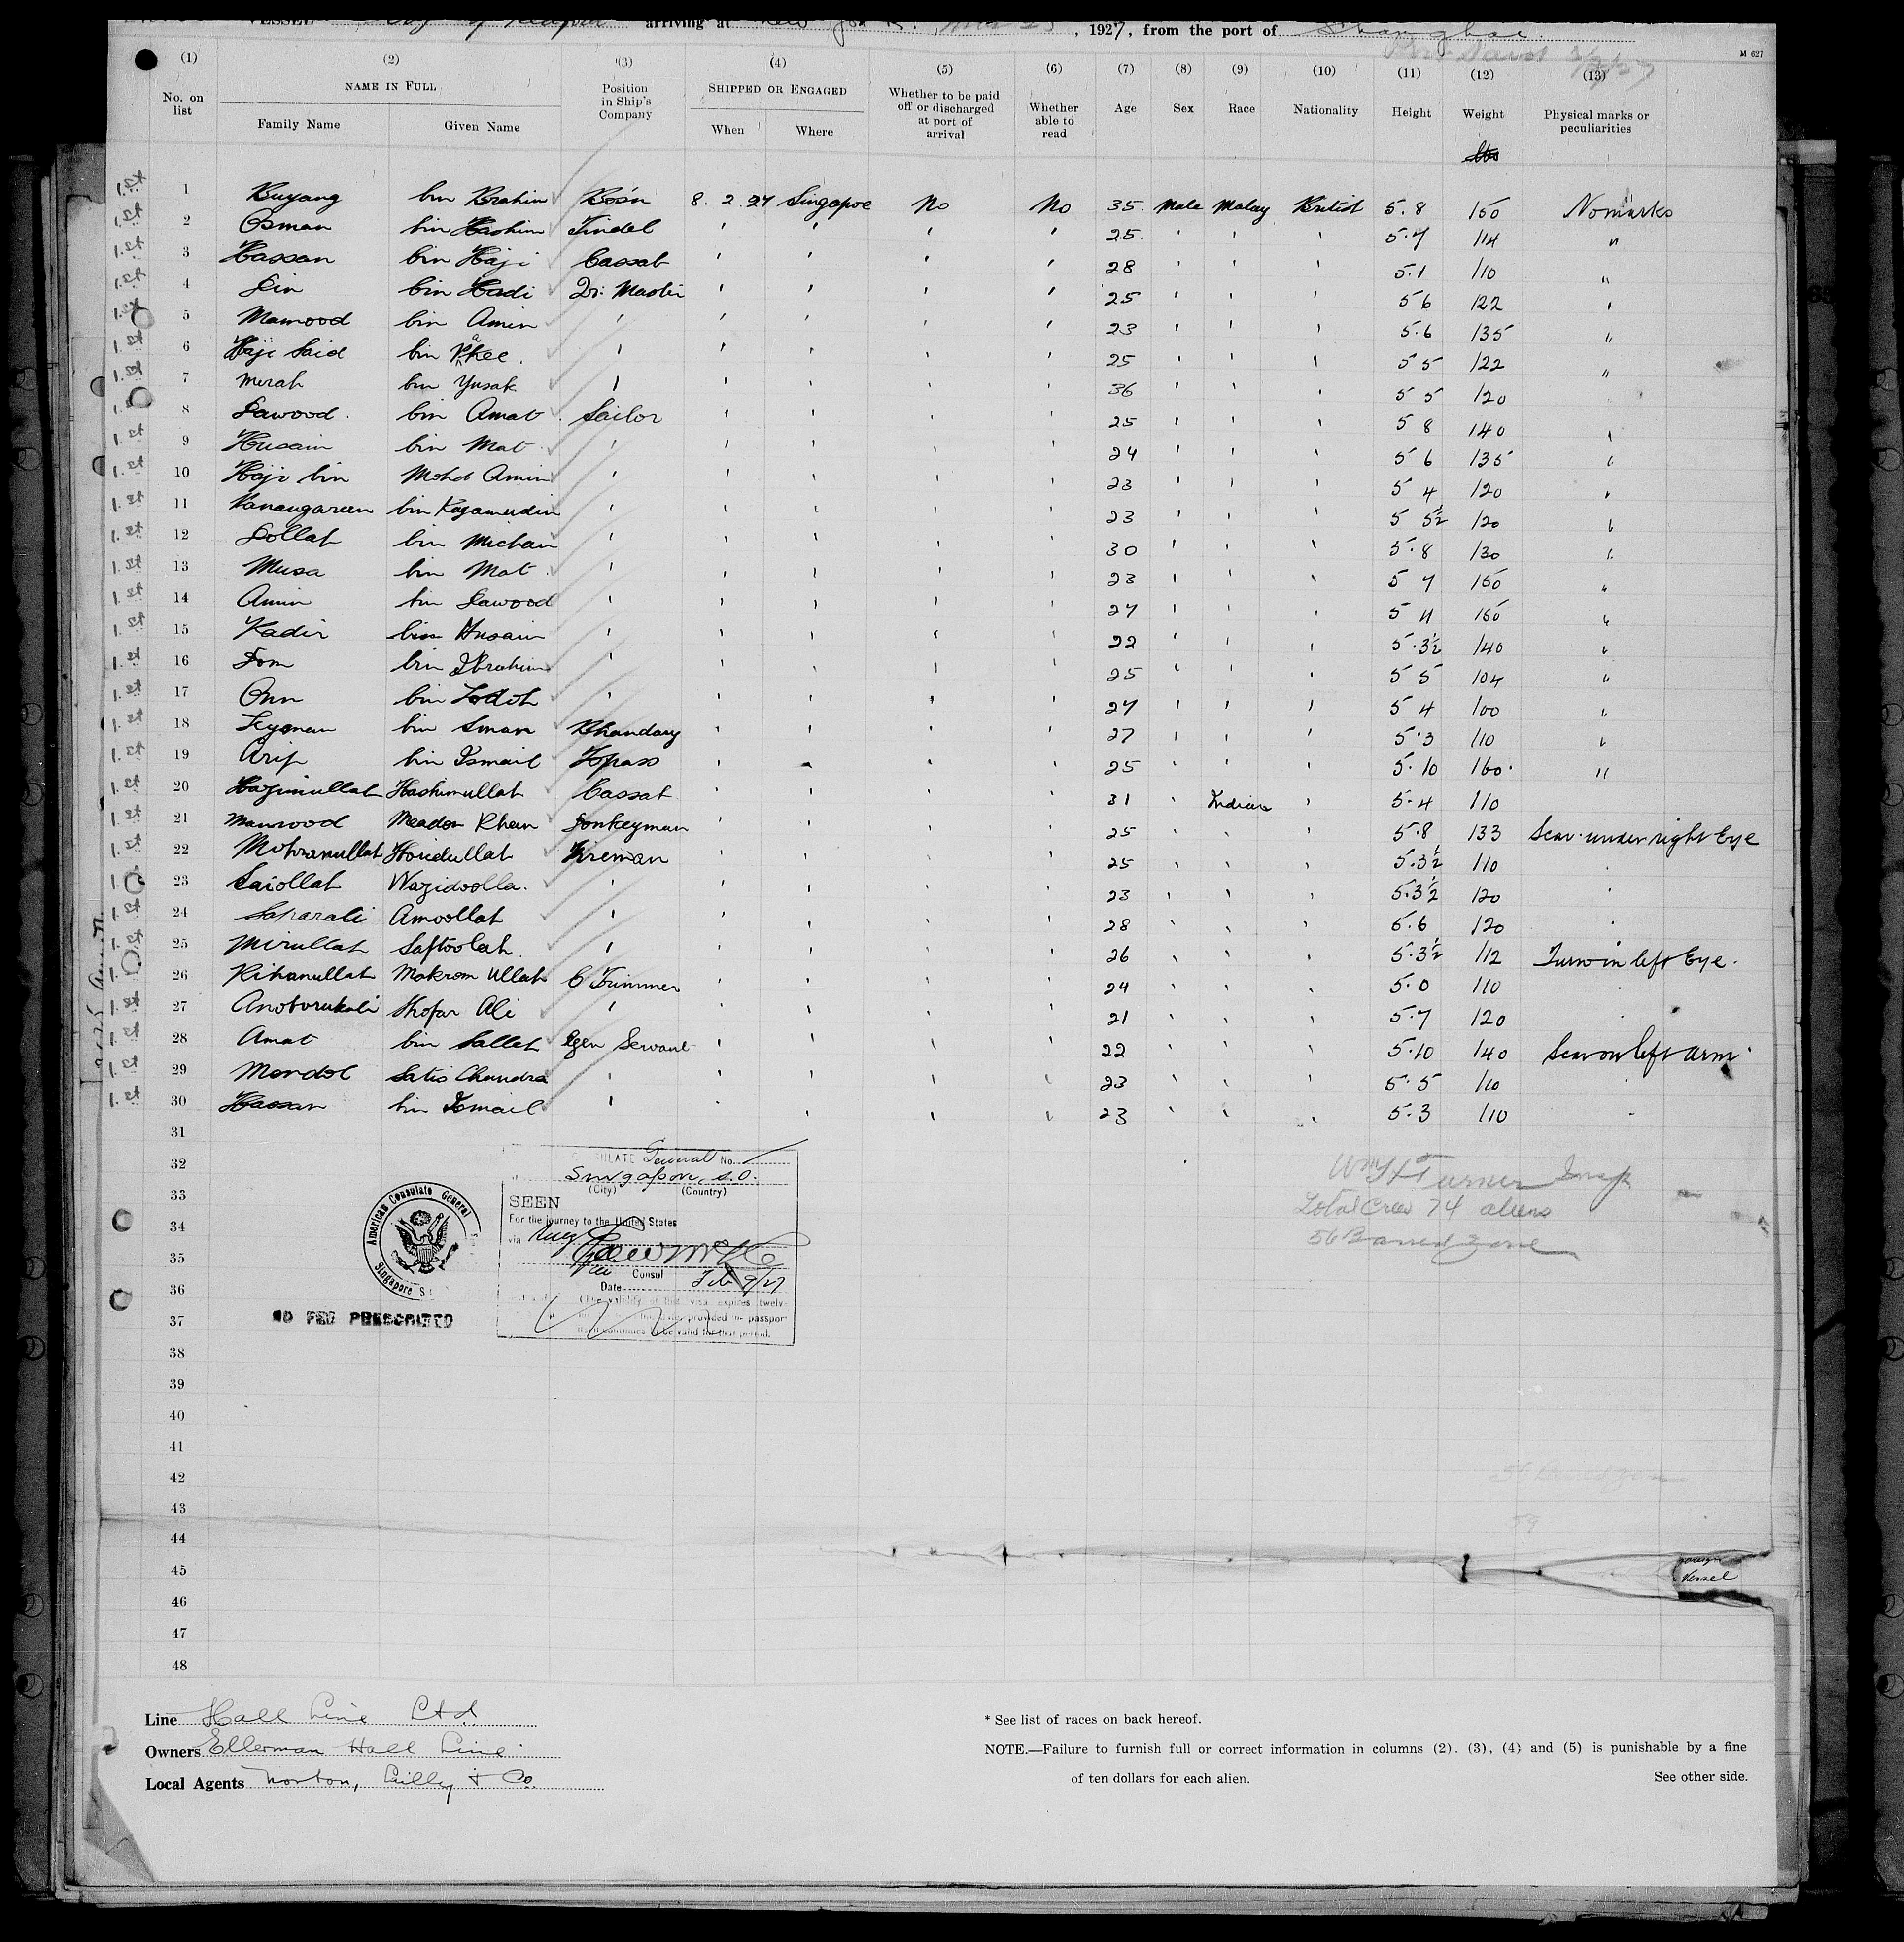 VESSEL City of arriving at New York, Mar 23, 1927, from the port of Shanghai.
M 627
(1) (2) (3) (4) (5) (6) (7) (8) (9) (10) (11) (12) (13)
No. on list NAME IN FULL Position in Ship's Company SHIPPED OR ENGAGED Whether to be paid off or discharged at port of arrival Whether able to read Age Sex Race Nationality Height Weight Physical marks or peculiarities
Family Name Given Name When Where
lbs
1 Buyang bin Brahim Bosn 8. 2. 27 Singapore No No 35 Male Malay British 5.8 150 No marks
2 Osman bin Hashim Tindel ' ' ' ' 25. ' ' ' 5.7 114 "
3 Hassan bin Haji Cassab ' ' ' ' 28 ' ' ' 5.1 110 "
4 Din bin Hadi Qr. Master ' ' ' ' 25 ' ' ' 5 6 122 '
5 Mamood bin Amin ' ' ' ' ' 23 ' ' ' 5.6 135 "
6 Haji Said bin ' ' ' ' ' 25 ' ' ' 5 5 122 "
7 Merah bin Yusak ' ' ' ' ' 36 ' ' ' 5 5 120
8 Dawood. bin Amat Sailor ' ' ' ' 25 ' ' ' 5 8 140 '
9 Husain bin Mat ' ' ' ' ' 24 ' ' ' 5 6 135 '
10 Haji bin Mohd Amin ' ' ' ' ' 23 ' ' ' 5 4 120 '
11 bin Kayamudin ' ' ' ' ' 23 ' ' ' 5 5½ 120 '
12 Dollah bin Michan ' ' ' ' ' 30 ' ' ' 5.8 130 '
13 Musa bin Mat ' ' ' ' ' 23 ' ' ' 5 7 150 "
14 Amin bin Dawood ' ' ' ' ' 27 ' ' ' 5 150 "
15 Kadir bin Husain ' ' ' ' ' 22 ' ' ' 5.3½ 140 '
16 Dom bin Ibrahim ' ' ' ' ' 25 ' ' ' 5 5 104 "
17 Onn bin ' ' ' ' ' 27 ' ' ' 5 4 100 '
18 bin Sman Bhandary ' ' ' ' 27 ' ' ' 5.3 110 '
19 Arip bin Ismail Topass ' ' ' ' 25 ' ' ' 5.10 160. "
20 Hazimullah Hashimullah Cassab ' ' ' ' 31 ' Indian ' 5.4 110
21 Mamood Meadon Khan Donkeyman ' ' ' ' 25 ' ' ' 5.8 133 Scar under right Eye
22 Fireman ' ' ' ' 25 ' ' ' 5.3½ 110 '
23 Saiollah Wazidoolla. ' ' ' ' ' 23 ' ' ' 5.3½ 120 '
24 Saparali Amoollah ' ' ' ' ' 28 ' ' ' 5.6 120 '
25 Mirullah Saftoolah. ' ' ' ' ' 26 ' ' ' 5.3½ 112 Turn in left Eye.
26 Kihanullah Makrom Ullah C Trimmer ' ' ' ' 24 ' ' ' 5.0 110 '
27 Shofar Ali ' ' ' ' ' 21 ' ' ' 5.7 120 '
28 Amat bin Salleh Servant ' ' ' ' 22 ' ' ' 5.10 140 Scar on left arm.
29 Mondol Satis Chandra ' ' ' ' ' 23 ' ' ' 5.5 110 '
30 Hassan bin Ismail ' ' ' ' ' 23 ' ' ' 5.3 110 '
31
32
33
34
35
36
37
38
39
40
41
42
43
44
45
46
47
48
American Consulate General
Singapore S
CONSULATE General No.
Singapore, S.S.
(City) (Country)
SEEN
For the journey to the United States
via
Vice Consul
Date Feb 9/27
(The validity of this visa expires twelve
provided the passport
continues to be valid for that period.
NO FEE PRESCRIBED
Turner Insp
Total Crew 74 aliens
56 Barred Zone
foreign
Vessel
Line Hall Line Ltd
Owners Ellerman Hall Line
Local Agents Norton, Lilly & Co.
* See list of races on back hereof.
NOTE.—Failure to furnish full or correct information in columns (2). (3), (4) and (5) is punishable by a fine
of ten dollars for each alien.
See other side.